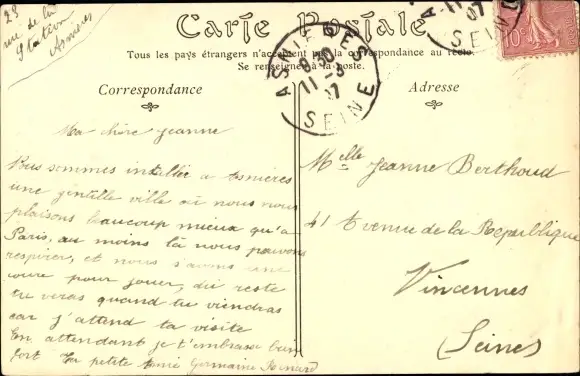 23
rue de la
Station
Asnières
Carte Postale
Tous les pays étrangers n'acceptent pas la correspondance au recto.
Se renseigner à la poste.
Correspondance
Adresse
ASNIERES
8 30
11 - 3
07
SEINE
A
11
07
SEINE
10
Ma chère Jeanne
Nous sommes intallée a Asnières
une gentille ville où nous nous
plaisons beaucoup mieux qu'a
Paris, au moins là nous pouvons
respirer, et nous avons une
coure pour jouer, du reste
tu veras quand tu viendras
car j'attend ta visite
En attendant je t'embrasse bien
fort Ta petite Amie Germaine Renard
Melle Jeanne Berthoud
41 Avenue de la République
Vincennes
Seines